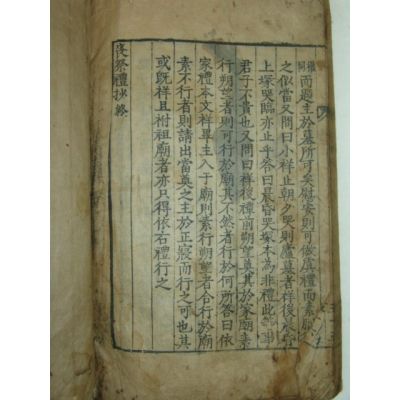 而題主於墓所可矣慰安則可依虞禮而素服
之似當又問曰小祥止朝夕哭則廬墓者祥後晨昏
上塚哭臨亦止乎答曰晨昏哭塚本為非禮此
君子不貴也又問曰祥後禫前朔望奠其於家廟素
行朔望者則可行於廟其不然者行於何所答曰依
家禮本文祥畢主入于廟則素行朔望者合行於廟
素不行者則請出當奠之主於正寢而行之可也其
或既祥且祔祖廟者亦只得依右禮行之
喪祭禮抄終